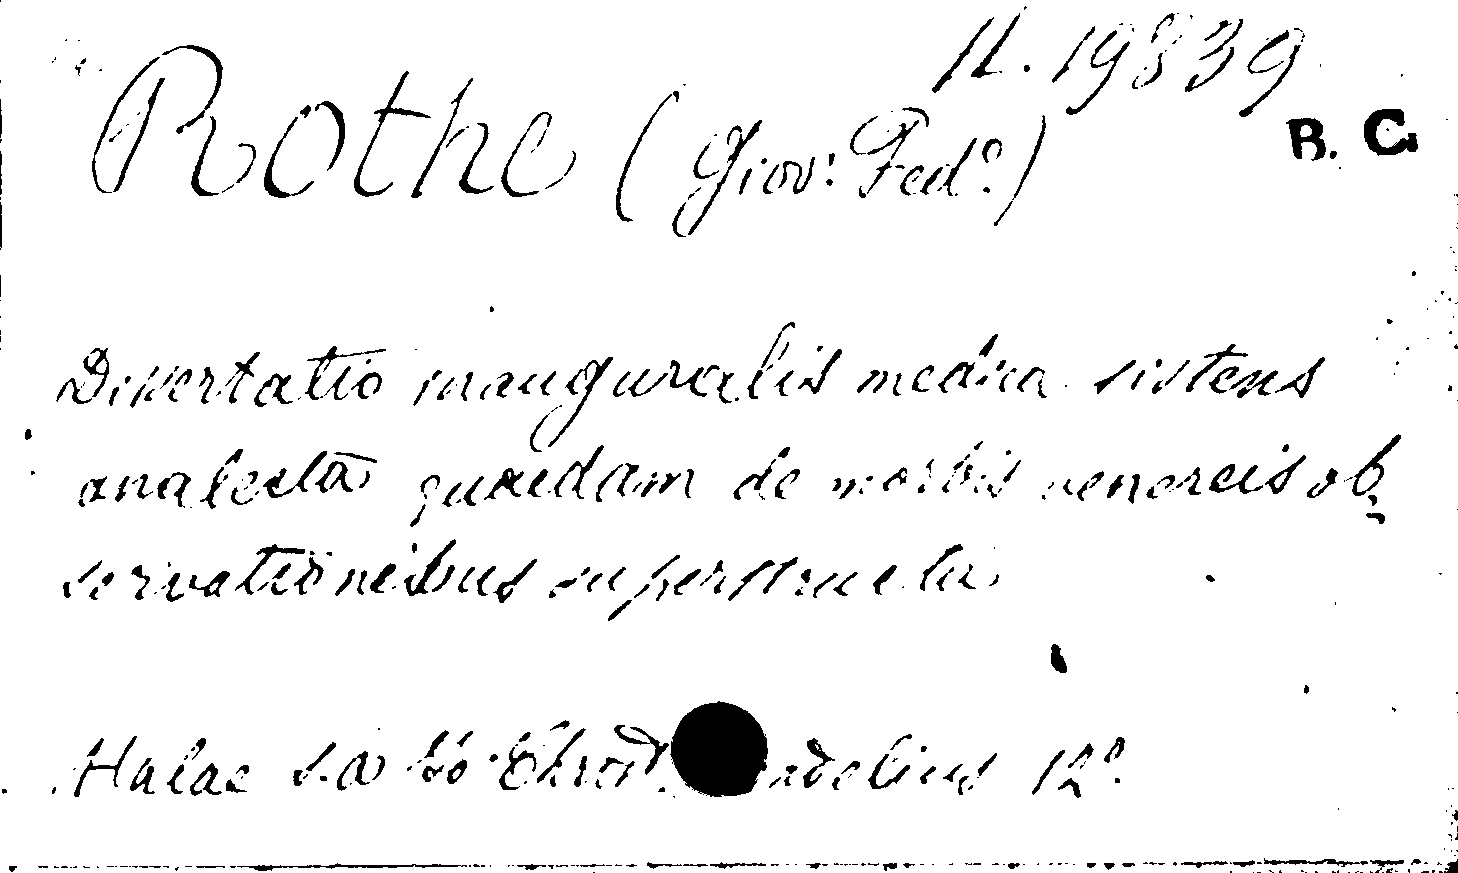 11.19839
Rothe (Giov: Fedº.)
B. C.
Dissertatio inauguralis medica sistens
analecta quaedam de morbis venereis ob=
servationibus superstructa
Halae s.a 12º